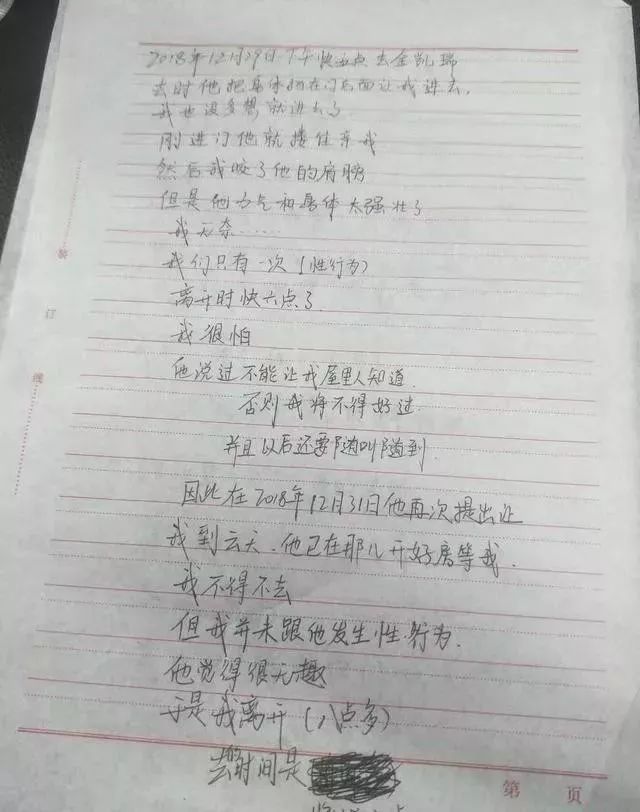 2018年12月29日下午快五点去金凯瑞
去时他把身体掩在门后面让我进去,
我也没多想就进去了
刚进门他就搂住亲我
然后我咬了他的肩膀
但是他力气和身体太强壮了
我无奈……
我们只有一次(性行为)
离开时快六点了
我很怕
他说过不能让我屋里人知道.
否则我将不得好过.
并且以后还要随叫随到.
因此在2018年12月31日他再次提出让
我到云天.他已在那儿开好房等我.
我不得不去
但我并未跟他发生性行为.
他觉得很无趣
于是我离开(八点多)
去时间是
装
订
线
第 页